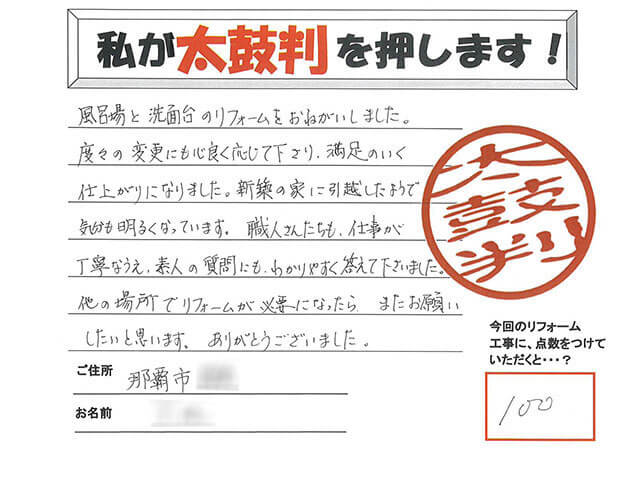 私が太鼓判を押します！
風呂場と洗面台のリフォームをおねがいしました。
度々の変更にも心良く応じて下さり、満足のいく
仕上がりになりました。新築の家に引越したようで
気分も明るくなっています。職人さんたちも、仕事が
丁寧なうえ、素人の質問にも、わかりやすく答えて下さいました。
他の場所でリフォームが必要になったら またお願い
したいと思います。ありがとうございました。
太鼓判
ご住所 那覇市
お名前
今回のリフォーム
工事に、点数をつけて
いただくと・・・？
100